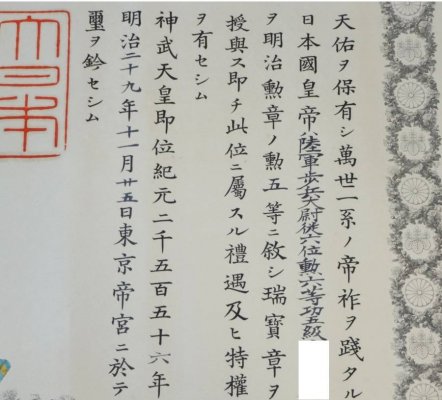 天佑ヲ保有シ萬世一系ノ帝祚ヲ踐タル
日本國皇帝ハ陸軍歩兵大尉從六位勲六等功五級
ヲ明治勲章ノ勲五等ニ敘シ瑞寶章ヲ
授與ス即チ此位ニ屬スル禮遇及ヒ特權
ヲ有セシム
神武天皇即位紀元二千五百五十六年
明治二十九年十一月廿五日東京帝宮ニ於テ
璽ヲ鈐セシム
大日本